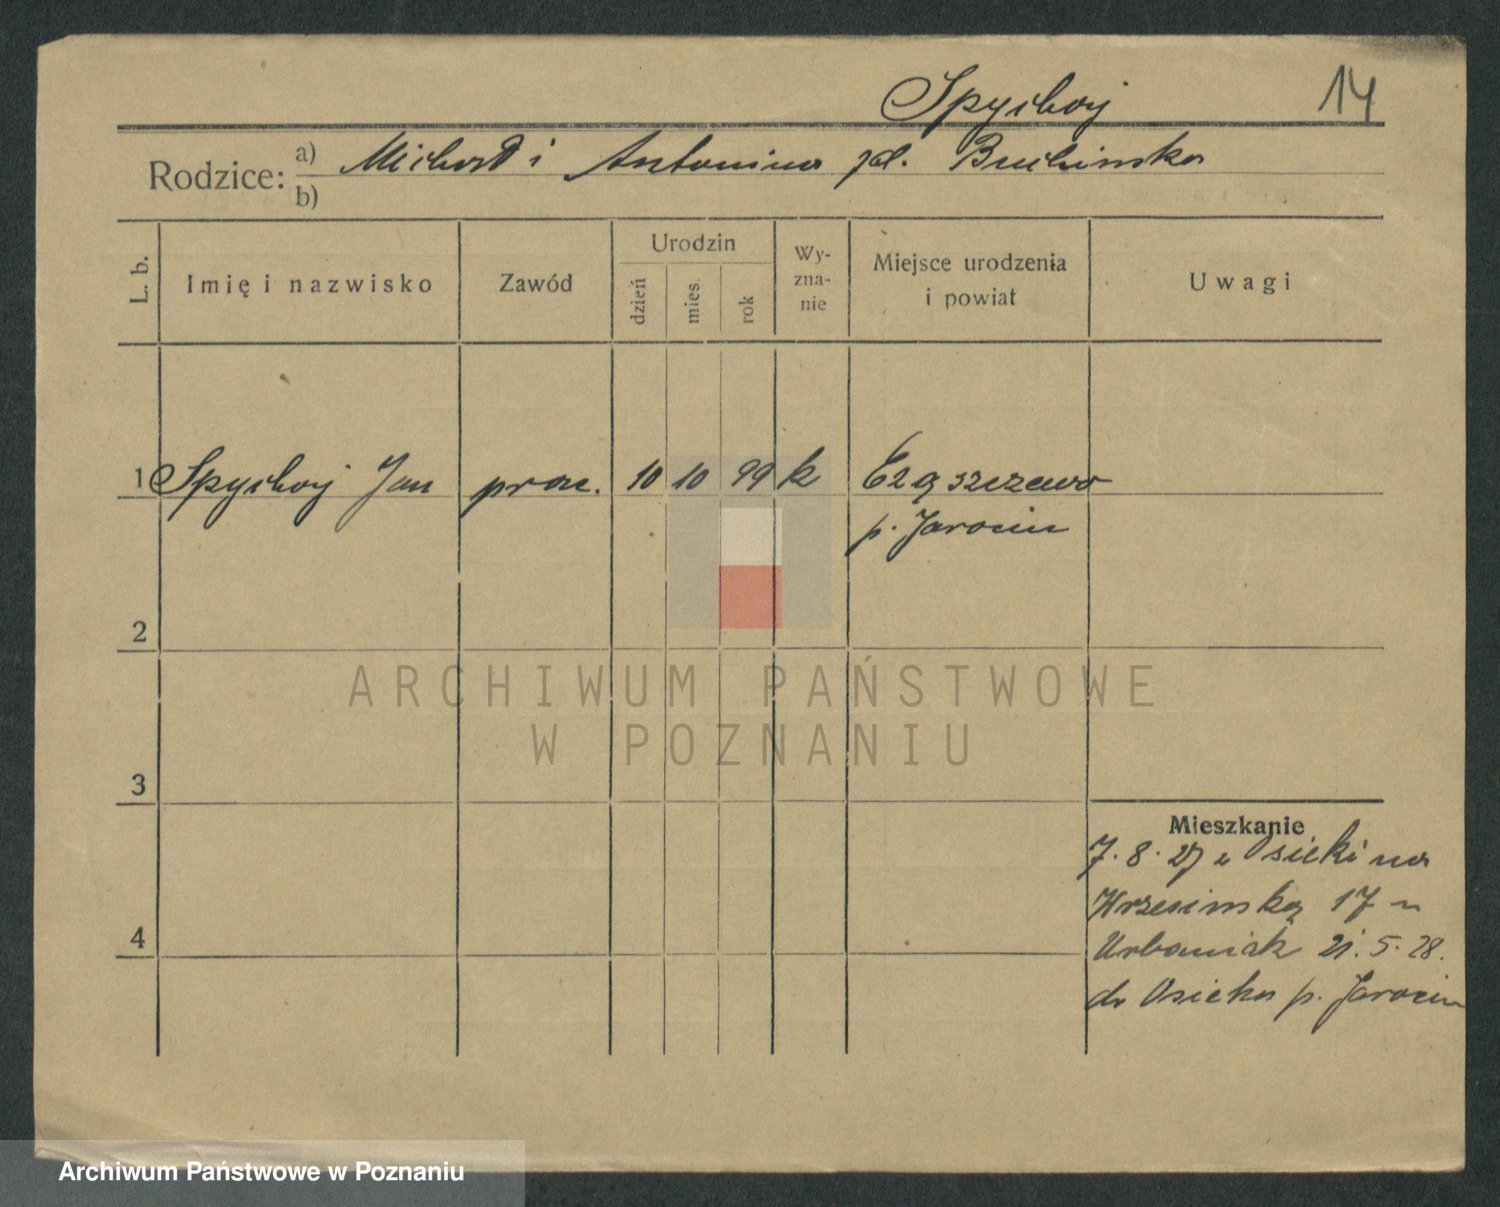 Spychaj 14
Rodzice: a) Michał i Antonina zd.
b)
L. b. Imię i nazwisko Zawód Urodzin dzień mies. rok Wy-zna-nie Miejsce urodzenia i powiat Uwagi
1 Spychaj Jan prac. 10 10 99 k
p. Jarocin
2
3
4
Mieszkanie
7. 8. 27 z Osieki na
Wrzesińską 17 u
Urbaniak 21. 5. 28.
do Osieka p. Jarocin
ARCHIWUM PAŃSTWOWE
W POZNANIU
Archiwum Państwowe w Poznaniu